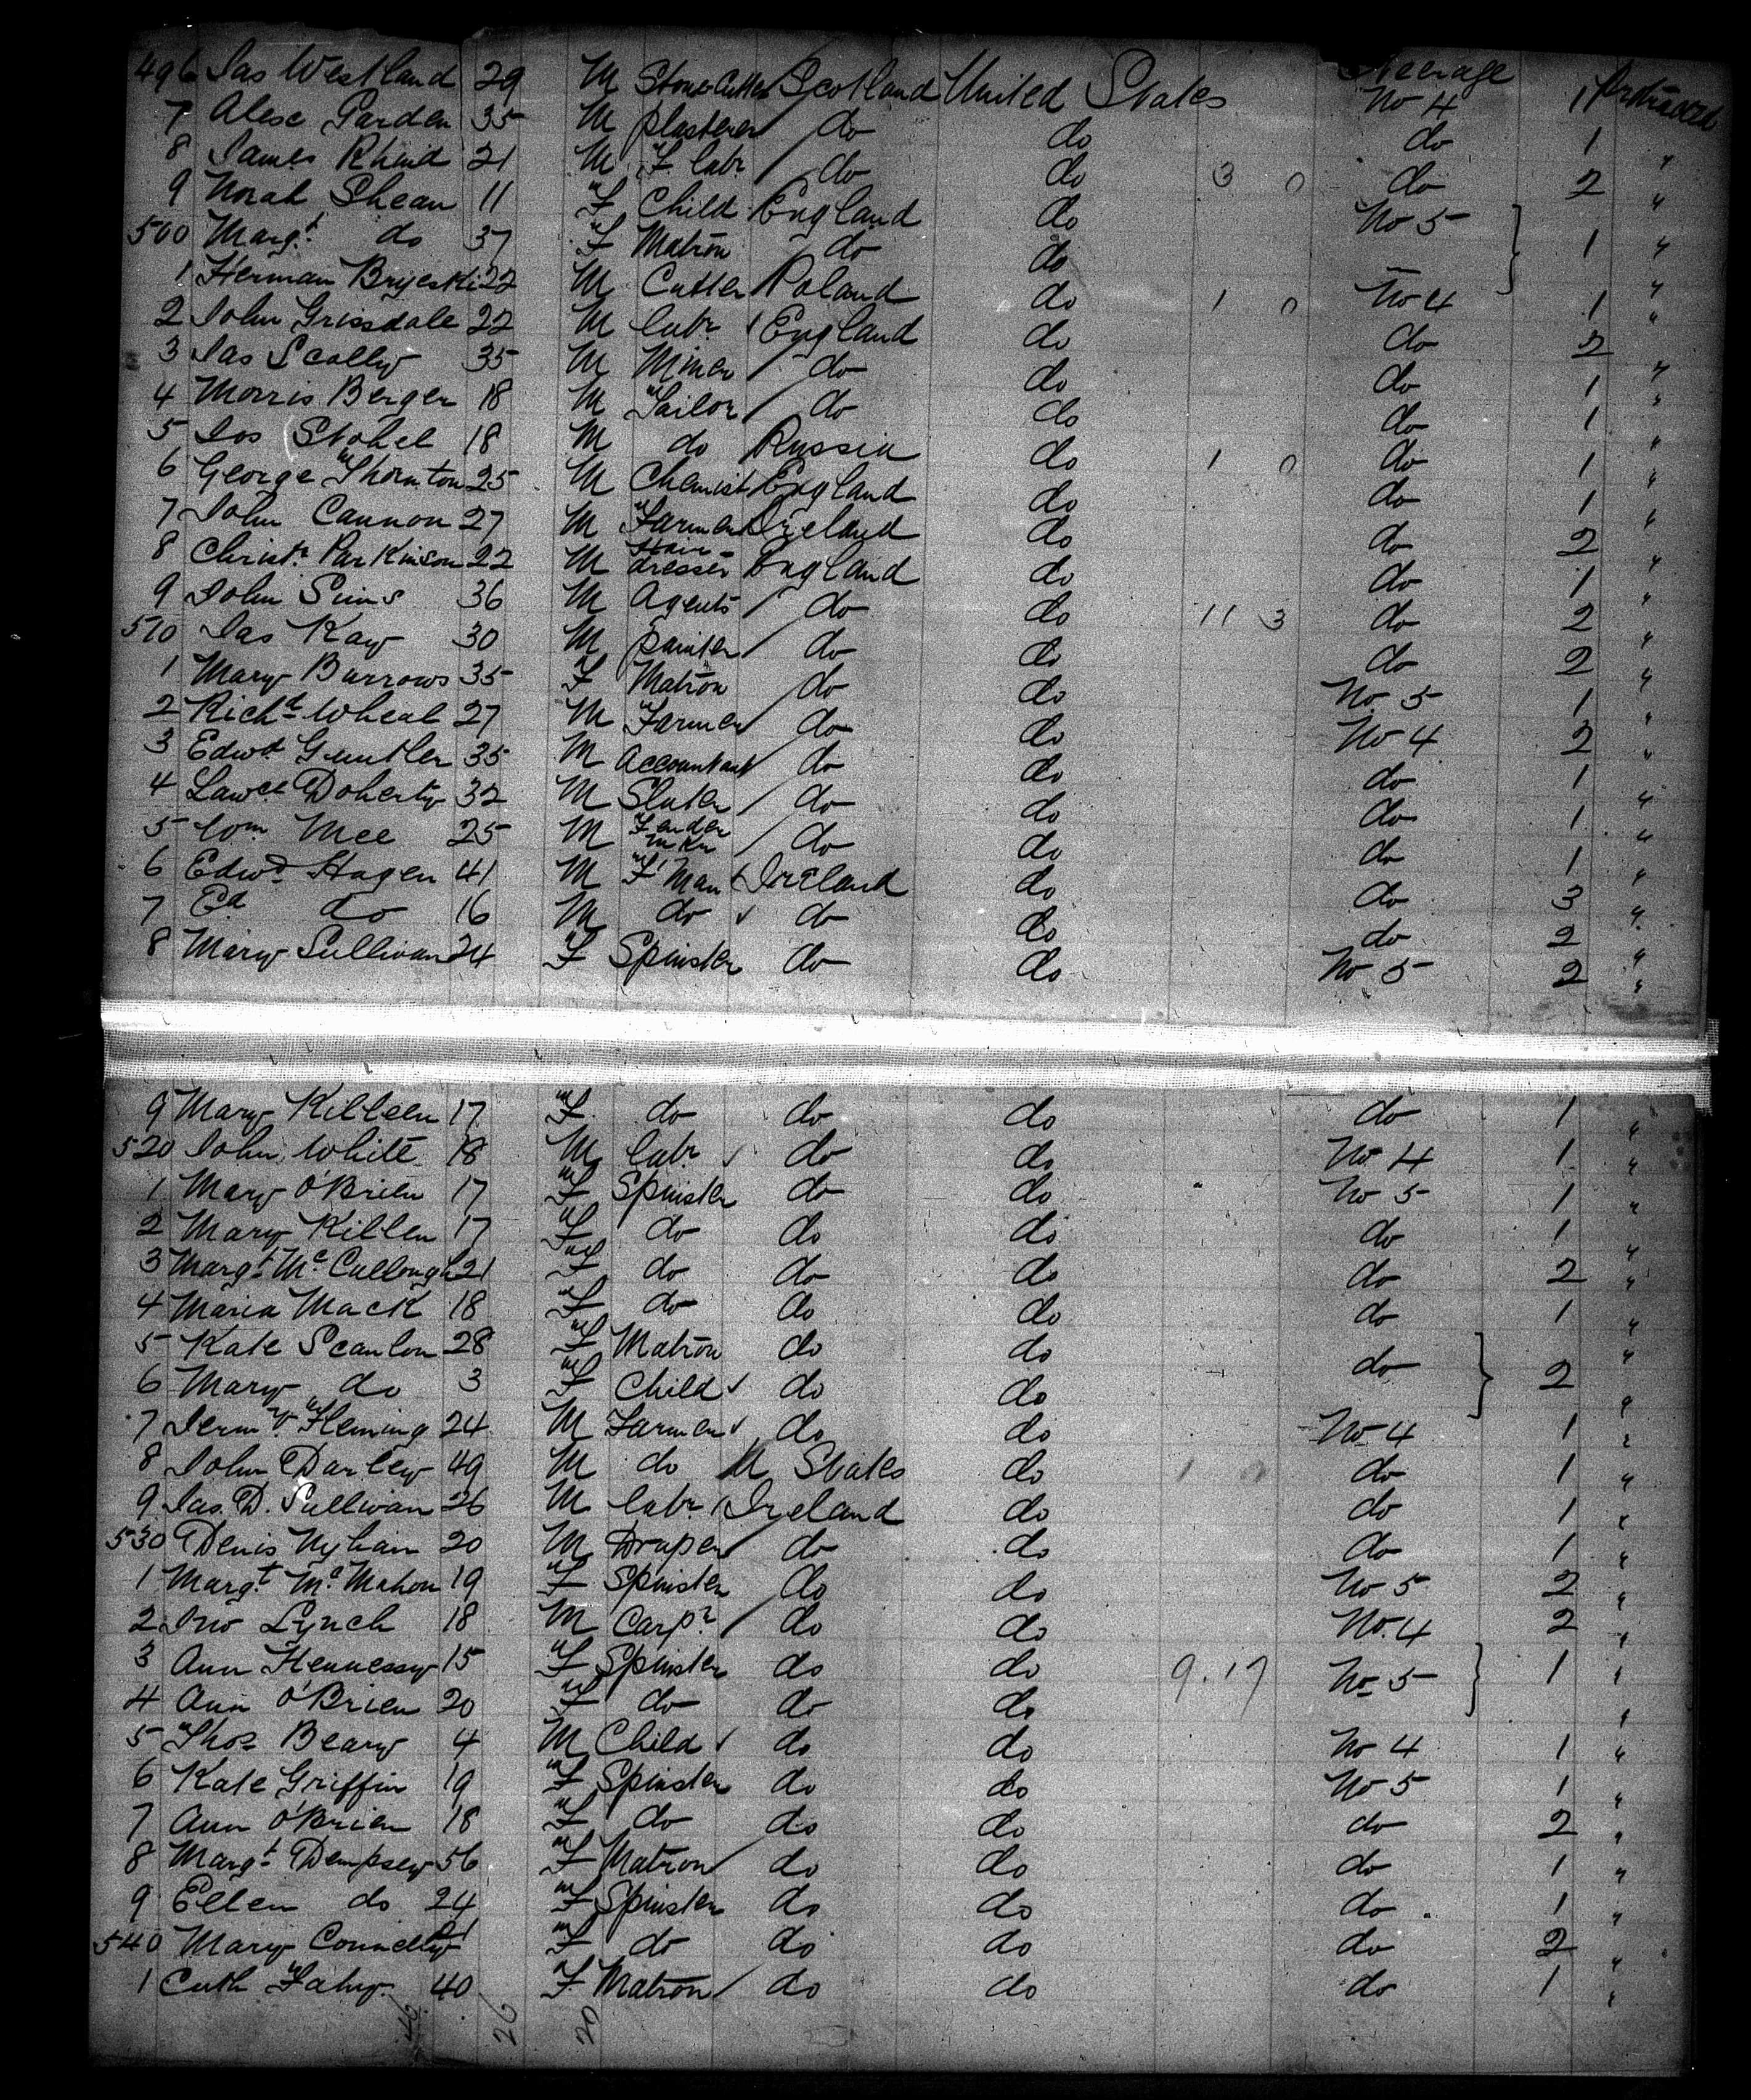 Steerage
496 Jas Westland 29 M Stone Cutter Scotland United States No 4 1 Protracted
7 Alexr Garden 35 M plasterer do do do 1 "
8 James Rhind 21 M F. labr do do 3 0 do 2 "
9 Norah Shean 11 F Child England do No 5
500 Margt do 37 F Matron do do 1 "
1 Herman Bryeski 22 M Cutter Poland do 1 0 No 4 1 "
2 John Grissdale 22 M labr England do do 2 "
3 Jas Scally 35 M Miner do do do 1 "
4 Morris Berger 18 M Tailor do do do 1 "
5 Jos Stohel 18 M do Russia do 1 0 do 1 "
6 George Thornton 25 M Chemist England do do 1 "
7 John Cannon 27 M Farmer Ireland do do 2 "
8 Christr Parkinson 22 M Hair dresser England do do 1 "
9 John Sims 36 M Agents do do 11 3 do 2 "
510 Jas Kay 30 M painter do do do 2 "
1 Mary Burrows 35 F Matron do do No 5 1 "
2 Richd Wheal 27 M Farmer do do No 4 2 "
3 Edwd Guntler 35 M Accountant do do do 1 "
4 Lawce Doherty 32 M Slater do do do 1 "
5 Wm Mee 25 M Fender mkr do do do 1 "
6 Edwd Hagen 41 M F'man Ireland do do 3 "
7 Ed do 16 M do do do do 2 "
8 Mary Sullivan 24 F Spinster do do No 5 2 "
9 Mary Killeen 17 F do do do do 1 "
520 John White 18 M labr do do No 4 1 "
1 Mary O'Brien 17 F Spinster do do No 5 1 "
2 Mary Killen 17 F do do do do 1 "
3 Margt McCullough 21 F do do do do 2 "
4 Maria Mack 18 F do do do do 1 "
5 Kate Scanlon 28 F Matron do do do 2 "
6 Mary do 3 F Child do do "
7 Jermh Fleming 24 M Farmer do do No 4 1 "
8 John Darley 49 M do U States do 1 0 do 1 "
9 Jas. D. Sullivan 26 M labr Ireland do do 1 "
530 Denis Nyhan 20 M Draper do do do 1 "
1 Margt McMahon 19 F Spinster do do No 5 2 "
2 Jno Lynch 18 M Carpr do do No. 4 2 "
3 Ann Hennessy 15 F Spinster do do 9.17 No 5 1 "
4 Ann O'Brien 20 F do do do "
5 Thos Beary 4 M Child do do No 4 1 "
6 Kate Griffin 19 F Spinster do do No 5 1 "
7 Ann O'Brien 18 F do do do do 2 "
8 Margt Dempsey 56 F Matron do do do 1 "
9 Ellen do 24 F Spinster do do do 1 "
540 Mary Connelly 21 F do do do do 2 "
1 Cath Fahy 40 F Matron do do do 1 "
46 26 20